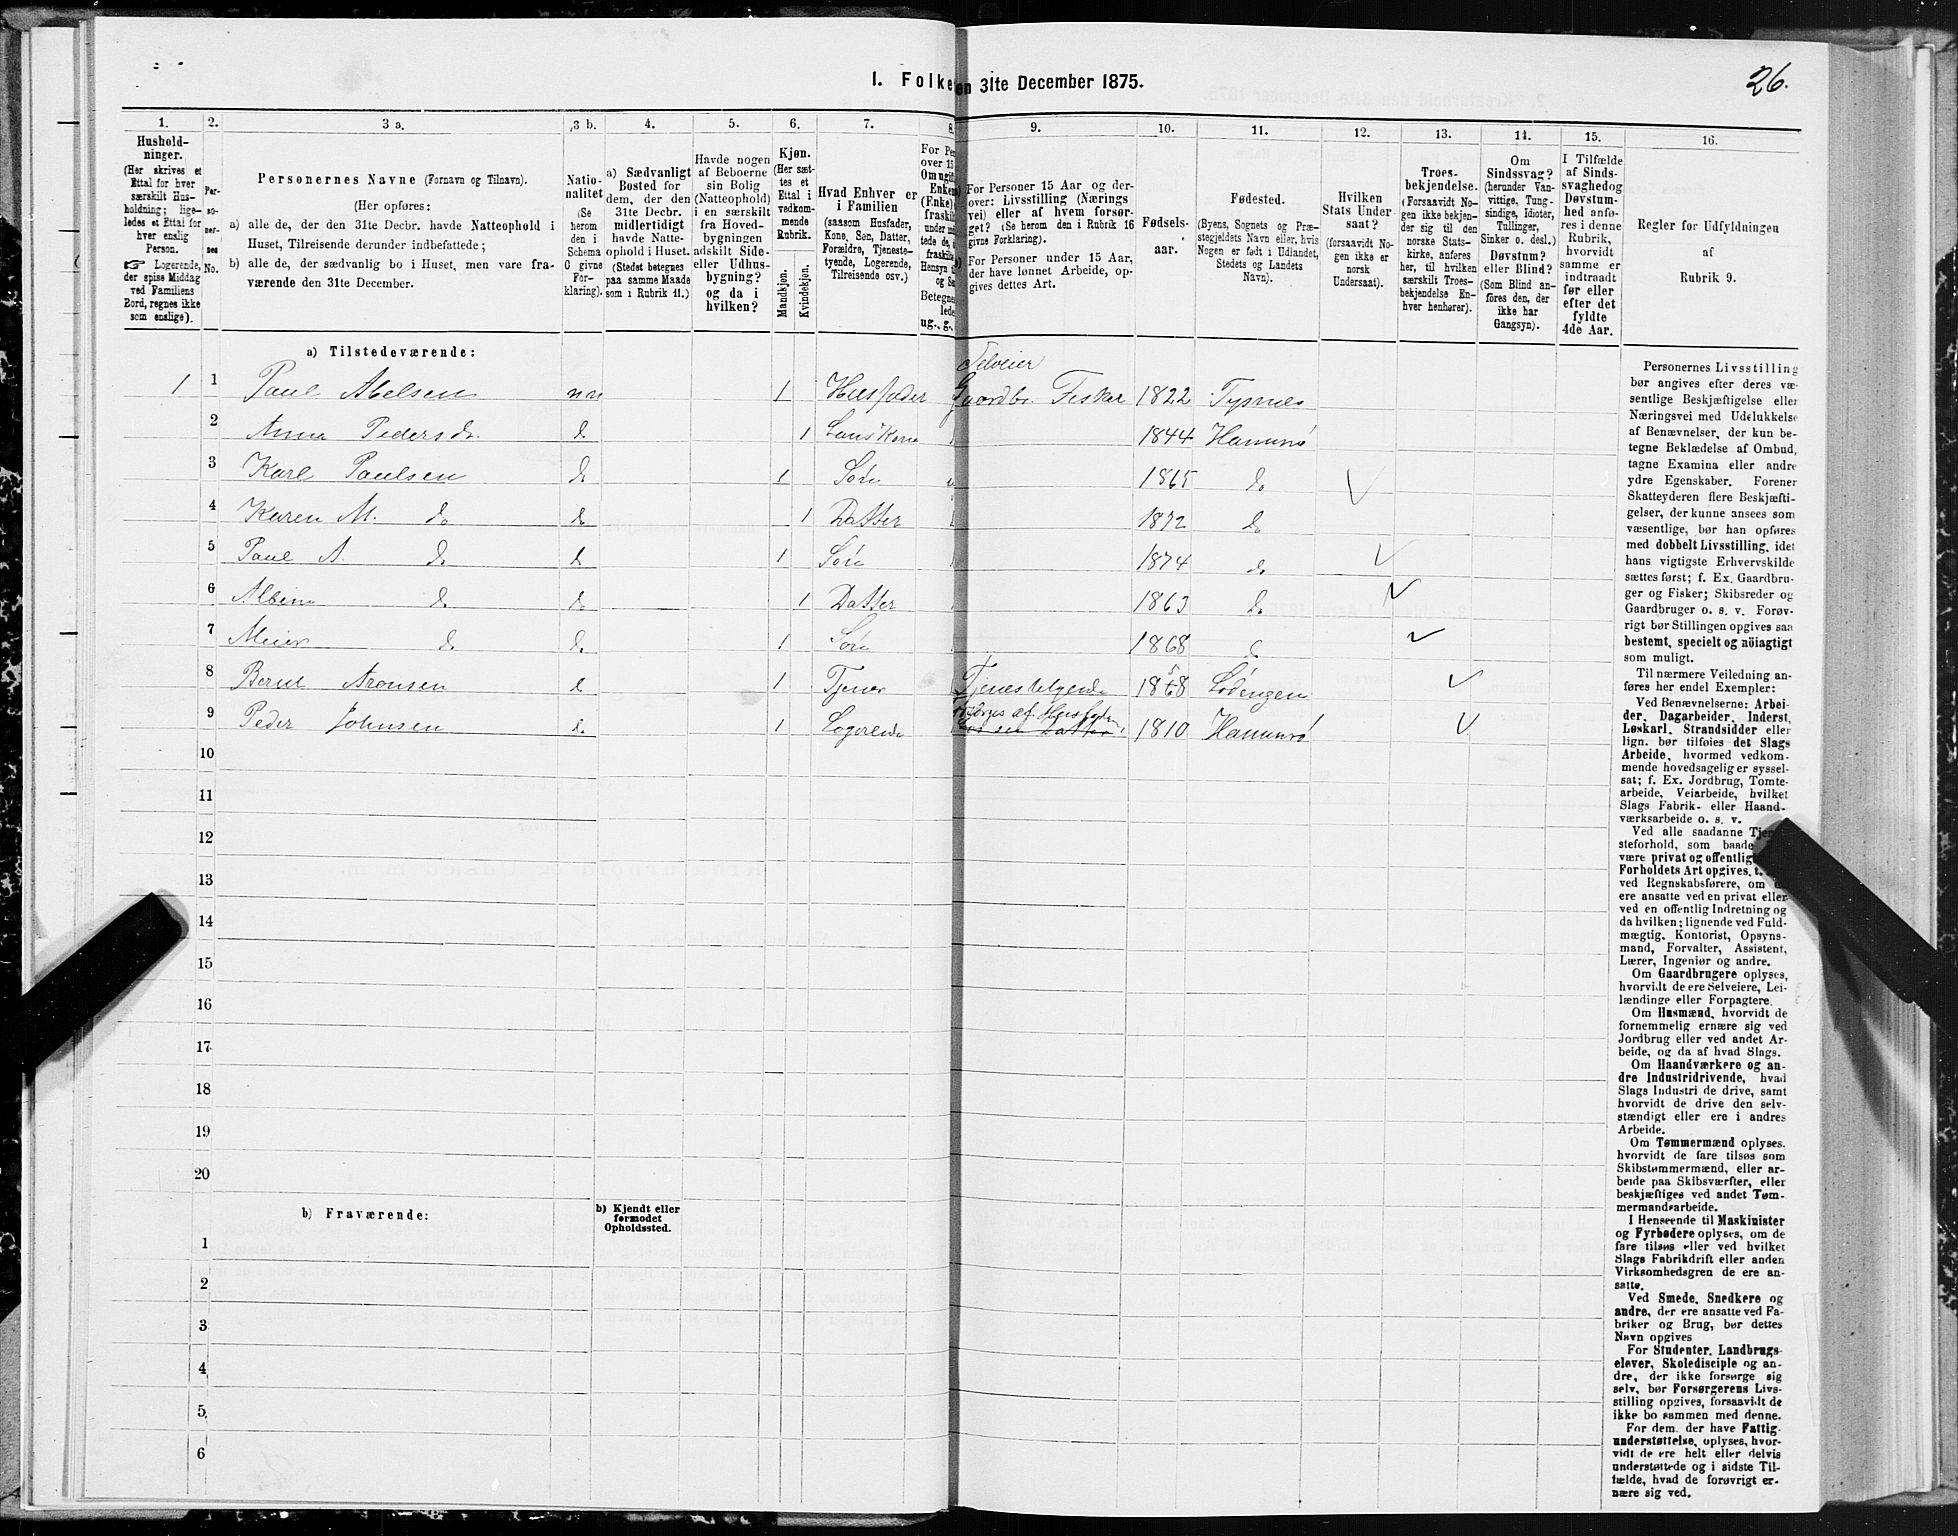 26.
I. Folke en 31te December 1875.
1. 2. 3 a. 3 b. 4. 5. 6. 7. 8. 9. 10. 11. 12. 13. 14. 15. 16.
Hushold-
ninger.
(Her skrives et
Ettal for hver
særskilt Hus-
holdning; lige-
ledes et Ettal for
hver enslig
Person.
☞ Logerende,
der spise Middag
ved Familiens
Bord, regnes ikke
som enslige).
Per-
so-
ner-
nes
No.
Personernes Navne (Fornavn og Tilnavn).
(Her opføres:
a) alle de, der den 31te Decbr. havde Natteophold i
Huset, Tilreisende derunder indbefattede;
b) alle de, der sædvanlig bo i Huset, men vare fra-
værende den 31te December.
Natio-
nalitet
(Se
herom
den i
Schema
O givne
For-
klaring).
a) Sædvanligt
Bosted for
dem, der den
31te Decbr.
midlertidigt
havde Natte-
ophold i Huset.
(Stedet betegnes
paa samme Maade
som i Rubrik 11.)
Havde nogen
af Beboerne
sin Bolig
(Natteophold)
i en særskilt
fra Hoved-
bygningen
adskilt Side-
eller Udhus-
bygning?
og da i
hvilken?
Kjøn.
(Her sæt-
tes et
Ettal i
vedkom-
mende
Rubrik.
Mandkjøn.
Kvindekjøn.
Hvad Enhver er
i Familien
(saasom Husfader,
Kone, Søn, Datter,
Forældre, Tjeneste-
tyende, Logerende,
Tilreisende osv.)
For Pe
over 15
Om ugift
Enkem
(Enke)
fraskil
under m
tede de,
fraskilt
Hensyn
og S
Betegne
lede
ug., g.,
For Personer 15 Aar og der-
over: Livsstilling (Nærings
vei) eller af hvem forsør-
get? (Se herom den i Rubrik 16
givne Forklaring).
For Personer under 15 Aar,
der have lønnet Arbeide, op-
gives dettes Art.
Fødsels-
aar.
Fødested.
(Byens, Sognets og Præ-
stegjeldets Navn eller, hvis
Nogen er født i Udlandet,
Stedets og Landets
Navn).
Hvilken
Stats Under-
saat?
(forsaavidt No-
gen ikke er
norsk
Undersaat).
Troes-
bekjendelse.
(Forsaavidt No-
gen ikke bekjen-
der sig til den
norske Stats-
kirke, anføres
her, til hvilken
særskilt Troes-
bekjendelse En-
hver henhører).
Om
Sindssvag?
(herunder Van-
vittige, Tung-
sindige, Idioter,
Tullinger,
Sinker o. desl.)
Døvstum?
eller Blind?
(Som Blind an-
føres den, der
ikke har
Gangsyn).
I Tilfælde
af Sinds-
svaghed og
Døvstum-
hed anfø-
res i denne
Rubrik,
hvorvidt
samme er
indtraadt
før eller
efter det
fyldte
4de Aar.
Regler for Udfyldningen
af
Rubrik 9.
a) Tilstedeværende:
Selveier
1 1 Paul Abelsen nn 1 Husfader Gaardbr. Fisker 1822 Tysnes
2 Anna Pedersdr. do 1 hans Kone 1844 Hammrø
3 Karl Paulsen do 1 Søn 1865 do
4 Karen M. do do 1 Datter 1872 do
5 Paul A. do do 1 Søn 1874 do
6 Albine do do 1 Datter 1863 do
7 Meier do do 1 Søn 1868 do
8 Bernt Aronsen do 1 Tjener Tjenestetyende 1858 Lødingen
9 Peder Johnsen do 1 Logerende forsørges af Husfaderen 1810 Hammrø
10
11
12
13
14
15
16
17
18
19
20
b) Fraværende:
b) Kjendt eller
formodet
Opholdssted.
1
2
3
4
5
6
Personernes Livsstilling
bør angives efter deres væ-
sentlige Beskjæftigelse eller
Næringsvei med Udelukkelse
af Benævnelser, der kun be-
tegne Beklædelse af Ombud,
tagne Examina eller andre
ydre Egenskaber. Forener
Skatteyderen flere Beskjæfti-
gelser, der kunne ansees som
væsentlige, bør han opføres
med dobbelt Livsstilling, idet
hans vigtigste Erhvervskilde
sættes først; f. Ex. Gaardbru-
ger og Fisker; Skibsreder og
Gaardbruger o. s. v. Forøv-
rigt bør Stillingen opgives saa
bestemt, specielt og nöiagtigt
som muligt.
Til nærmere Veiledning an-
føres her endel Exempler:
Ved Benævnelserne: Arbei-
der, Dagarbeider, Inderst,
Løskarl, Strandsidder eller
lign. bør tilføies det Slags
Arbeide, hvormed vedkom-
mende hovedsagelig er syssel-
sat; f. Ex. Jordbrug, Tomte-
arbeide, Veiarbeide, hvilket
Slags Fabrik- eller Haand-
værksarbeide o. s. v.
Ved alle saadanne Tjen
steforhold, som baade
være privat og offentlig
Forholdets Art opgives, t.
ved Regnskabsførere, om
ere ansatte ved en privat eller
ved en offentlig Indretning og
da hvilken; lignende ved Fuld-
mægtig, Kontorist, Opsyns-
mand, Forvalter, Assistent,
Lærer, Ingeniør og andre.
Om Gaardbrugere oplyses,
hvorvidt de ere Selveiere, Lei-
lændinge eller Forpagtere.
Om Husmænd, hvorvidt de
fornemmelig ernære sig ved
Jordbrug eller ved andet Ar-
beide, og da af hvad Slags.
Om Haandværkere og an-
dre Industridrivende, hvad
Slags Industri de drive, samt
hvorvidt de drive den selv-
stændigt eller ere i andres
Arbeide.
Om Tømmermænd oplyses,
hvorvidt de fare tilsøs som
Skibstømmermænd, eller ar-
beide paa Skibsværfter, eller
beskjæftiges ved andet Tøm-
mermandsarbeide.
I Henseende til Maskinister
og Fyrbødere oplyses, om de
fare tilsøs eller ved hvilket
Slags Fabrikdrift eller anden
Virksomhedsgren de ere an-
satte.
Ved Smede, Snedkere og
andre, der ere ansatte ved Fa-
briker og Brug, bør dettes
Navn opgives
For Studenter, Landbrugs-
elever, Skoledisciple og an-
dre, der ikke forsørge sig
selv, bør Forsørgerens Livs-
stilling opgives, forsaavidt de
ikke bo sammen med denne.
For dem, der have Fattig-
understøttelse, oplyses, hvor-
vidt de ere helt eller delvis
understøttede og i sidste Til-
fælde, hvad de forøvrigt er-
nære sig ved.